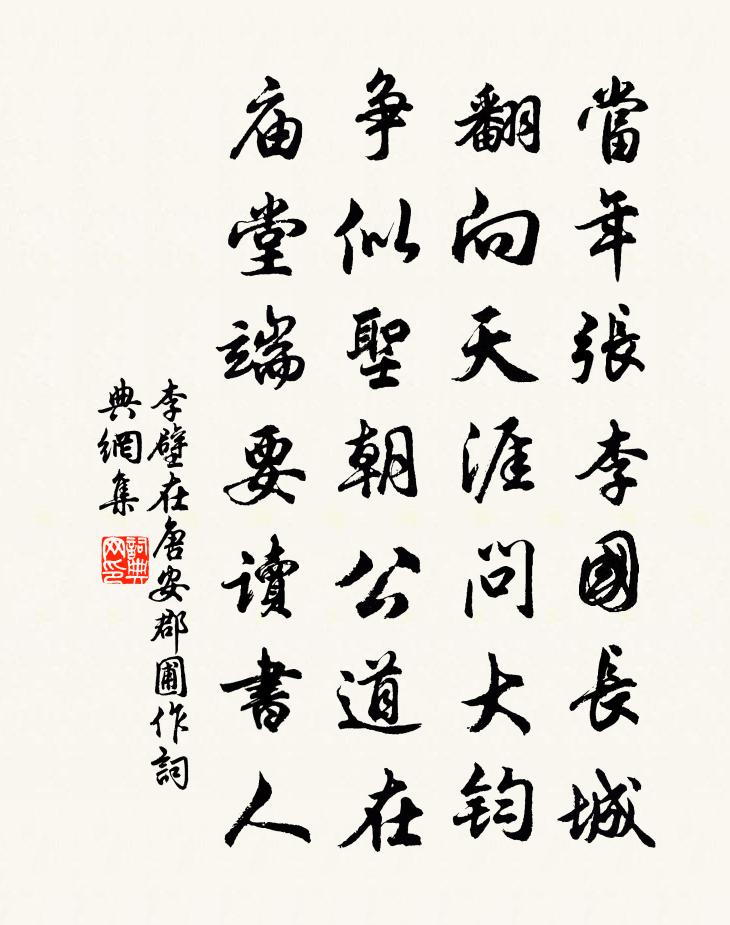 當年張李國長城
翻向天涯问大钧
争似聖朝公道在
庙堂端要讀書人
李壁在唐安郡圃作詞
典網集
詞典
网印